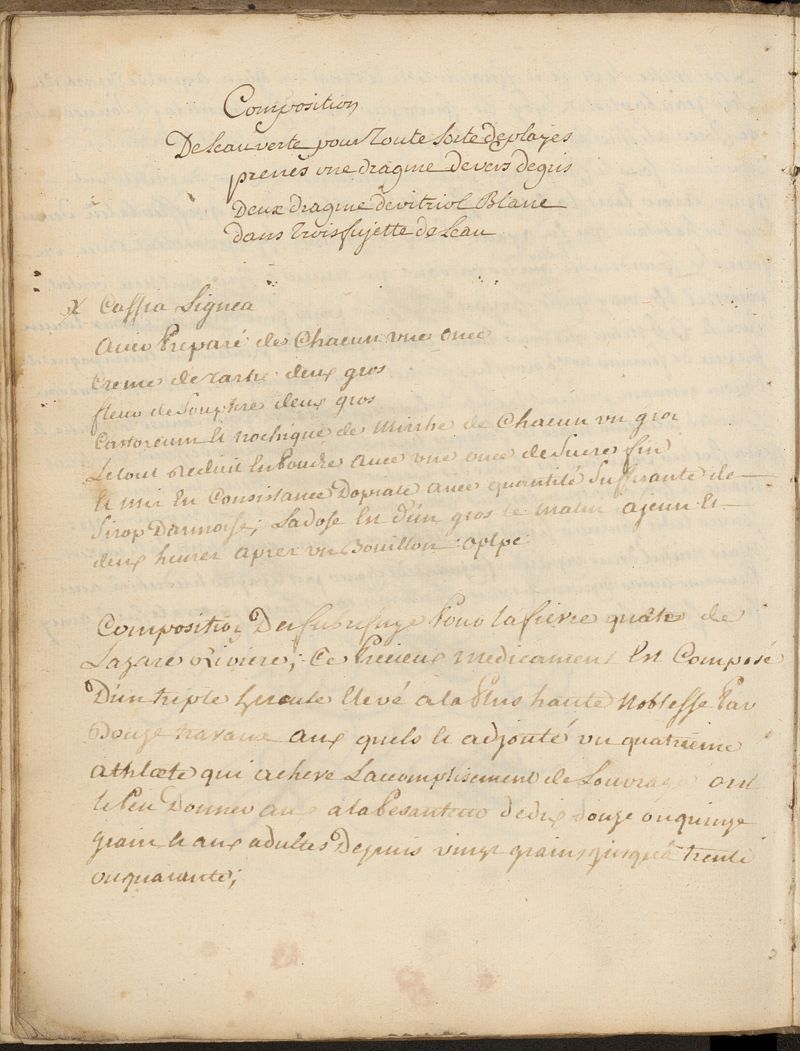 Composition
De Leau verte pour Toute sorte de playes
prenés une dragme de vers de gris
Deux dragme de vitriol Blanc
dans trois de Leau
Cassia Lignea
Acier Preparé de Chacun une once
Creme de tartre deux gros
fleur de Souphre deux gros
Castoreum et trochique de Mirrhe de Chacun un gros
Le tout reduit En Poudre avec une once de Sucre fin
et mis En Consistance Dopiate avec quantité Suffisante de
Sirop Darmoise; La dose Est d'un gros le matin a jeun Et
deux heures apres un Bouillon
Composition Du febrifuge Pour la fievre quarte de
Lazare Riviere; Ce Precieux medicament Est Composé
D'un triple Elevé a la Plus haute Noblesse Par
Douze travaux aux quels le adjouté un quatrieme
athlœte qui acheve Laccomplisement de Louvrage on
le Peu Donner aux a la Pesanteur de dix douze ou quinze
grain et aux adultes Depuis vingt grains jusqu'a trente
ou quarante;